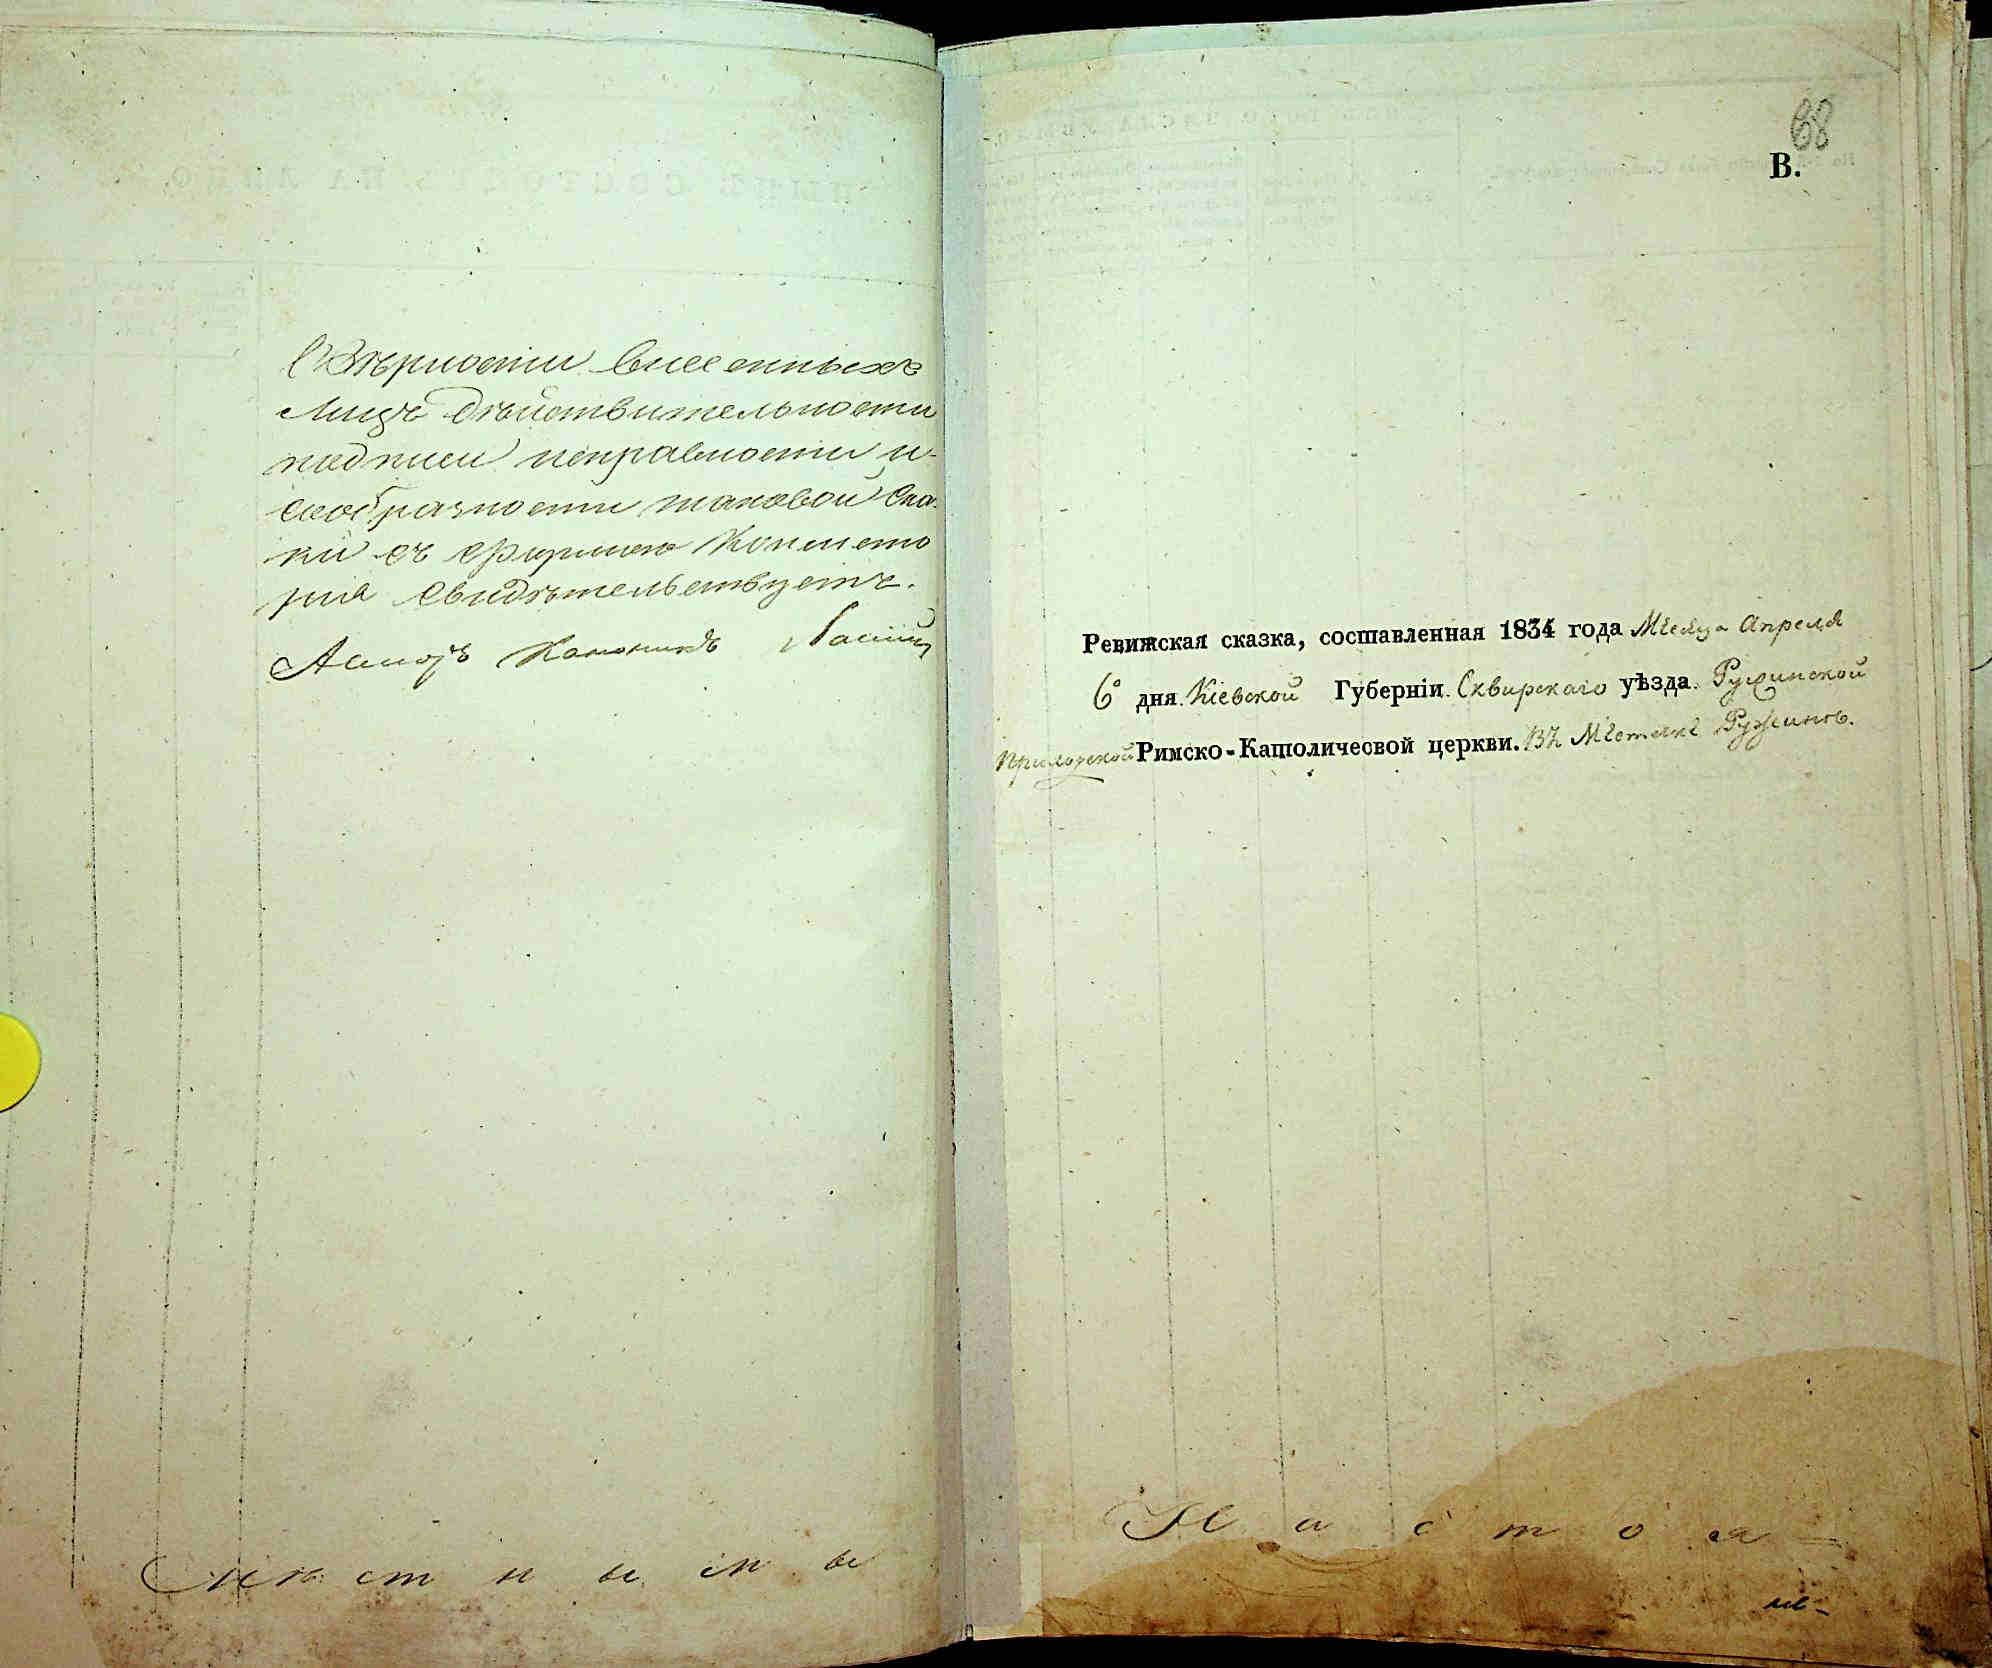 О Вѣрности внесенныхъ
лицъ дѣйствительности
подписи исправности и
сообразности таковой Ска-
ки съ формою Консисто
рия Свидѣтельствуетъ.
Асессоръ Каноникъ
мѣ ст н ы м ъ
68
В.
Ревижская сказка, составленная 1834 года Мѣсяца Апреля
6º дня. Кіевской Губерніи. Сквирскаго уѣзда. Ружинской
Приходской Римско-Католичесвой церкви. Въ Мѣстечкѣ Ружинѣ.
Н а с т о я